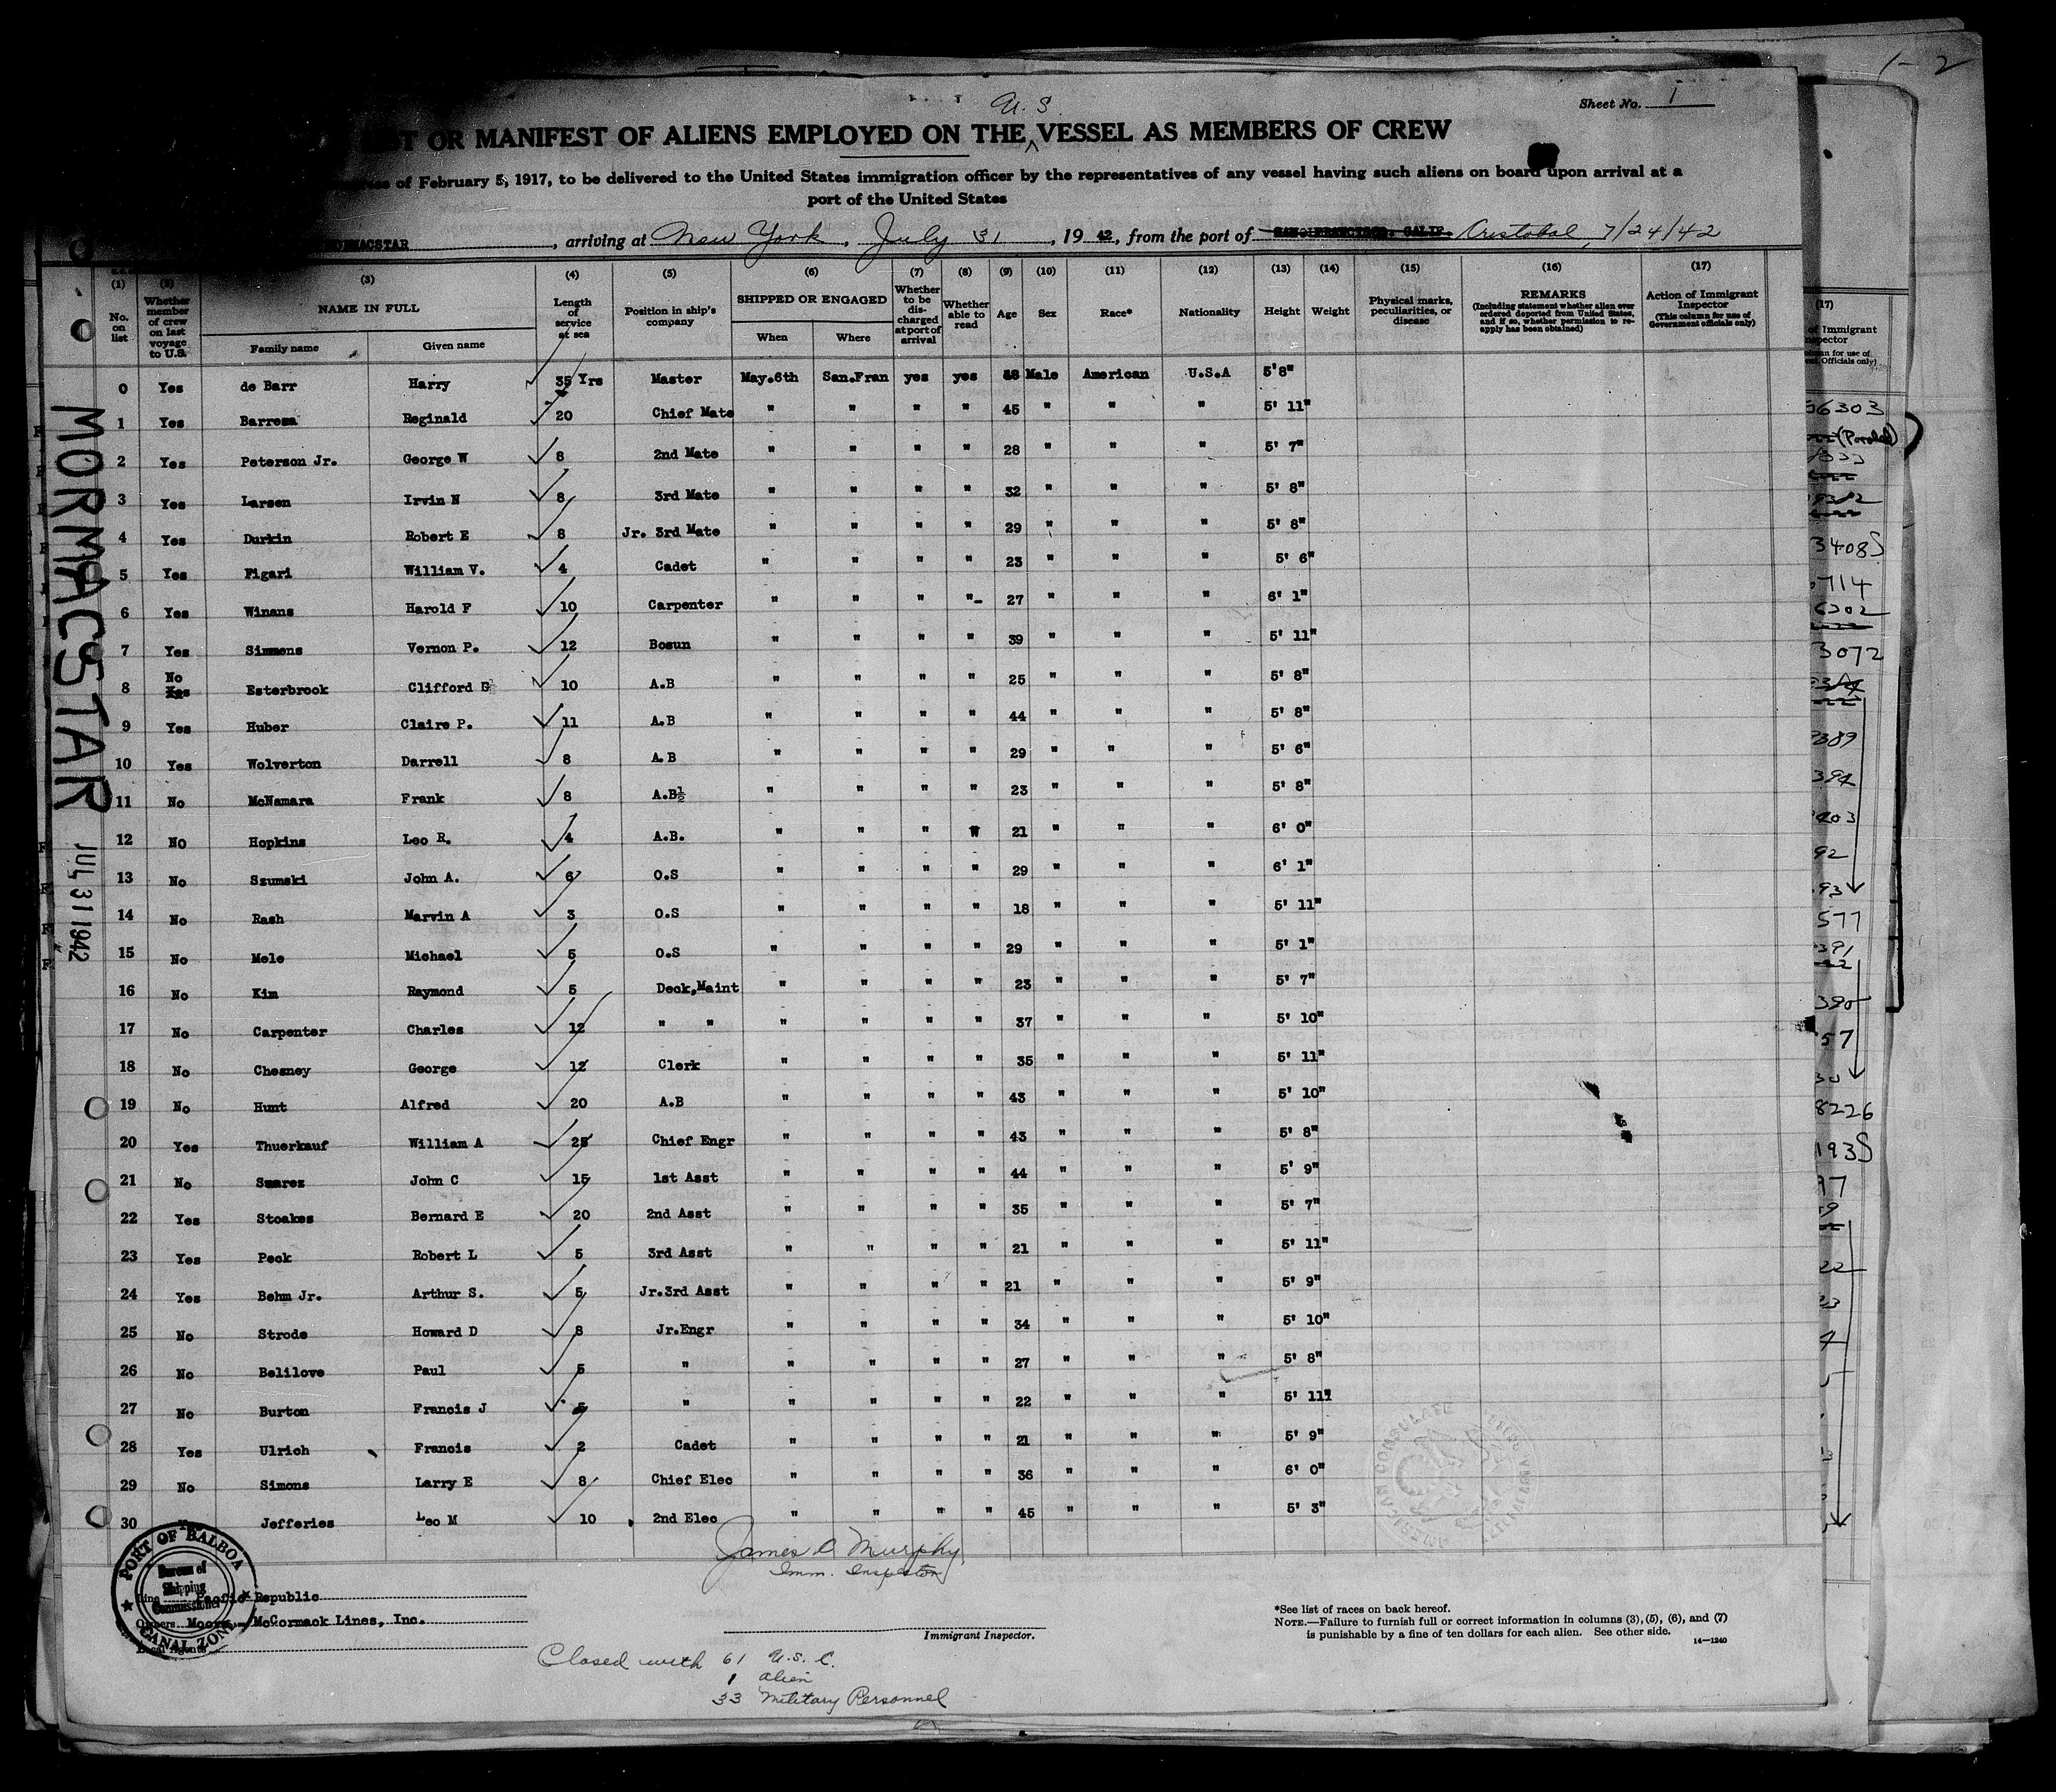 1-2
Sheet No. 1
U.S.
LIST OR MANIFEST OF ALIENS EMPLOYED ON THE VESSEL AS MEMBERS OF CREW
of February 5, 1917, to be delivered to the United States immigration officer by the representatives of any vessel having such aliens on board upon arrival at a
port of the United States
MORMACSTAR, arriving at New York, July 31, 1942, from the port of SAN FRANCISCO, CALIF. Cristobal, 7/24/42
(1) (2) (3) (4) (5) (6) (7) (8) (9) (10) (11) (12) (13) (14) (15) (16) (17)
No. on list Whether member of crew on last voyage to U.S. NAME IN FULL Family name Given name Length of service at sea Position in ship's company SHIPPED OR ENGAGED When Where Whether to be discharged at port of arrival Whether able to read Age Sex Race* Nationality Height Weight Physical marks, peculiarities, or disease REMARKS (Including statement whether alien ever ordered deported from United States, and if so, whether permission to reapply has been obtained) Action of Immigrant Inspector (This column for use of Government officials only)
0 Yes de Barr Harry 35 Yrs Master May.6th San.Fran yes yes Male American U.S.A 5'8"
1 Yes Barresa Reginald 20 Chief Mate " " " " 45 " " " 5' 11"
2 Yes Peterson Jr. George W 8 2nd Mate " " " " 28 " " " 5' 7"
3 Yes Larsen Irvin N 8 3rd Mate " " " " 32 " " " 5' 8"
4 Yes Durkin Robert E 8 Jr. 3rd Mate " " " " 29 " " " 5' 8"
5 Yes Figari William V. 4 Cadet " " " " 23 " " " 5' 6"
6 Yes Winans Harold F 10 Carpenter " " " "- 27 " " " 6' 1"
7 Yes Simmens Vernon P. 12 Bosun " " " " 39 " " " 5' 11"
8 No Yes Esterbrook Clifford G 10 A.B " " " " 25 " " " 5' 8"
9 Yes Huber Claire P. 11 A.B " " " " 44 " " " 5' 8"
10 Yes Wolverton Darrell 8 A.B " " " " 29 " " " 5' 6"
11 No McNamara Frank 8 A.B½ " " " " 23 " " " 5' 8"
12 NO Hopkins Leo R. 4 A.B. " " " W 21 " " " 6' 0"
13 No Szumski John A. 6 O.S " " " " 29 " " " 6' 1"
14 No Rash Marvin A 3 O.S " " " " 18 " " " 5' 11"
15 No Mele Michael 5 O.S " " " " 29 " " " 5' 1"
16 No Kim Raymond 5 Deck,Maint " " " " 23 " " " 5' 7"
17 No Carpenter Charles 12 " " " " " " 37 " " " 5' 10"
18 No Chesney George 12 Clerk " " " " 35 " " " 5' 11"
19 No Hunt Alfred 20 A.B " " " " 43 " " " 5' 10"
20 Yes Thuerkauf William A 25 Chief Engr " " " " 43 " " " 5' 8"
21 No Suarez John C 15 1st Asst " " " " 44 " " " 5' 9"
22 Yes Stoakes Bernard E 20 2nd Asst " " " " 35 " " " 5' 7"
23 Yes Peck Robert L 5 3rd Asst " " " " 21 " " " 5' 11"
24 Yes Behm Jr. Arthur S. 5 Jr.3rd Asst " " " " 21 " " " 5' 9"
25 No Strode Howard D 8 Jr.Engr " " " " 34 " " " 5' 10"
26 No Belilove Paul 5 " " " " " 27 " " " 5' 8"
27 No Burton Francis J 5 " " " " " 22 " " " 5' 11"
28 Yes Ulrich Francis 2 Cadet " " " " 21 " " " 5' 9"
29 No Simons Larry E 8 Chief Elec " " " " 36 " " " 6' 0"
30 Jefferies Leo M 10 2nd Elec " " " " 45 " " " 5' 3"
MORMACSTAR JUL 31 1942
James C. Murphy
Imm. Inspector
PORT OF BALBOA
Bureau of Shipping Commissioner
CANAL ZONE
Line Pacific Republic
Owners Moore-McCormack Lines, Inc.
Immigrant Inspector.
*See list of races on back hereof.
NOTE.—Failure to furnish full or correct information in columns (3), (5), (6), and (7)
is punishable by a fine of ten dollars for each alien. See other side.
14—1240
Closed with 61 U.S.C.
1 alien
33 Military Personnel
AMERICAN CONSULATE
(17)
of Immigrant
3408S
714
6202
3072
577
57
8226
193S
97